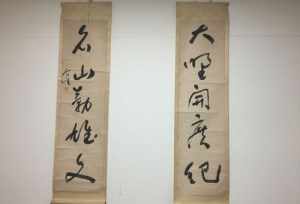 大野開廣紀
名山勒雄文